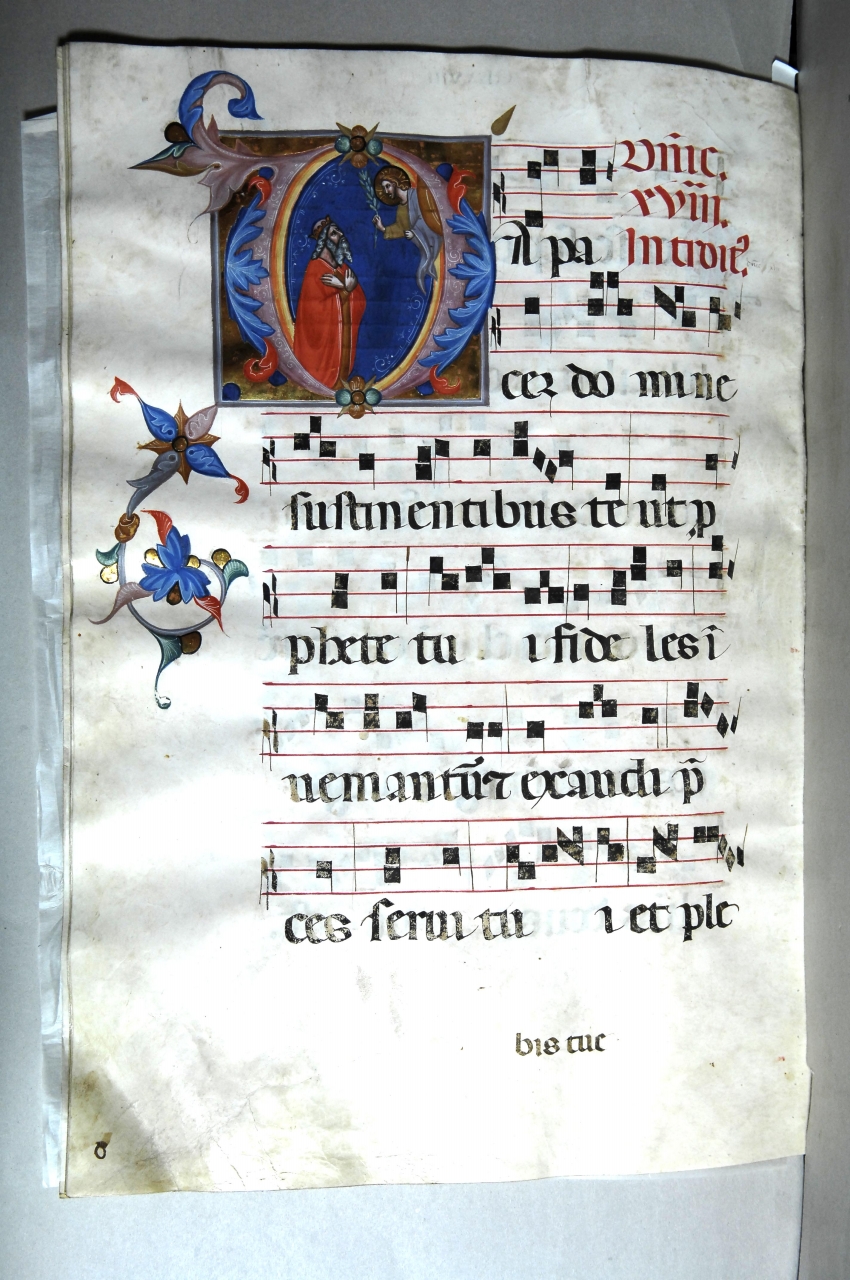 Dñic.
xviii.
Introit9
DA pa
cez do mine
sustinentibus te ut p
phete tu i fide les ī
ueniantur̄ exaudi p̄
ces serui tu i et ple
bis tue